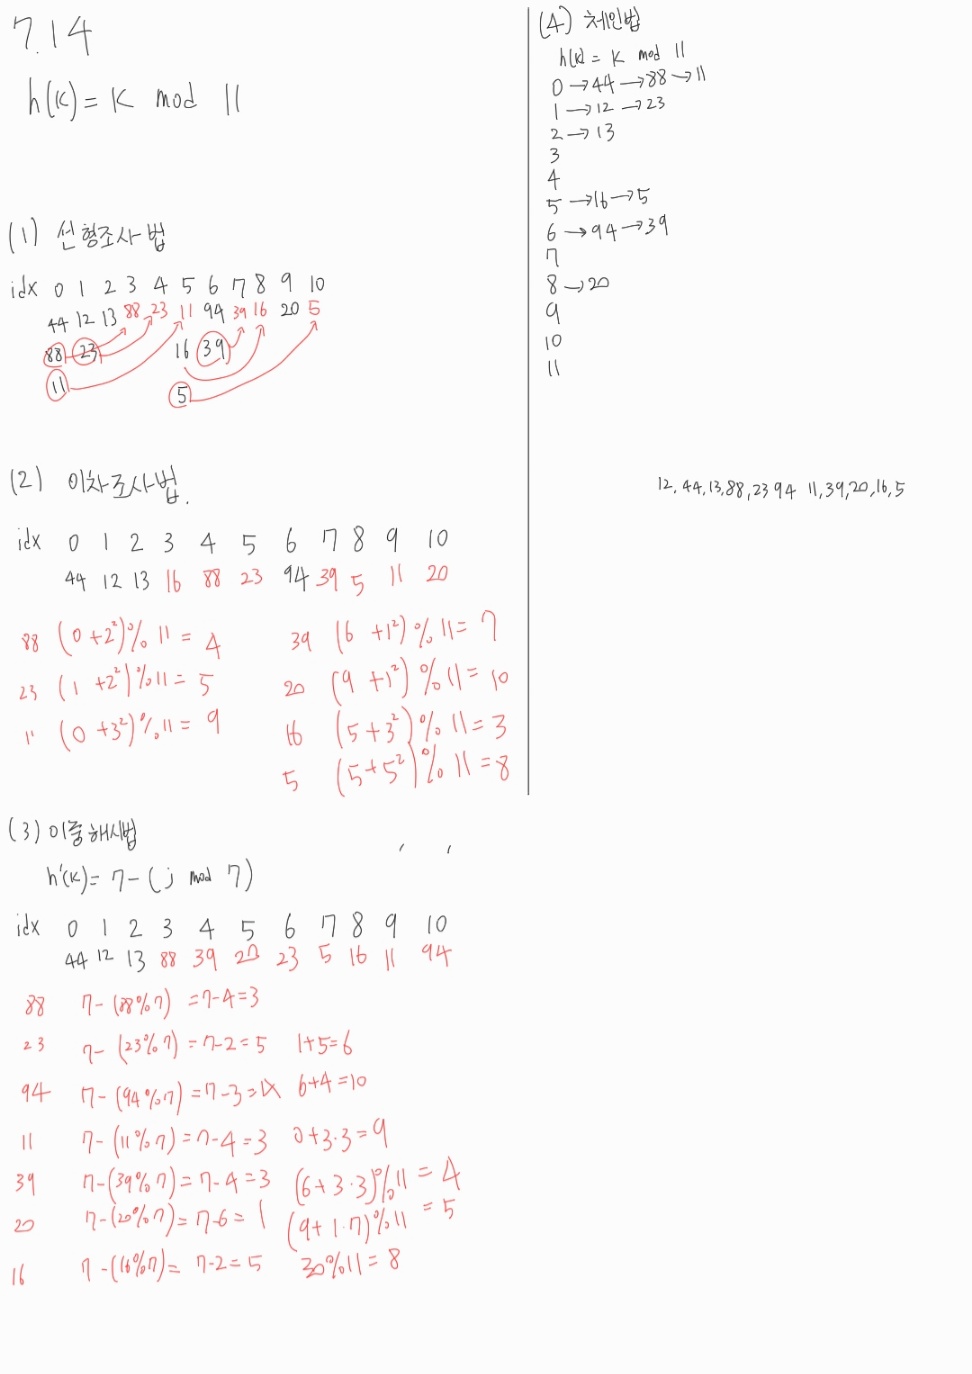 7.14
h(K) = K mod 11
(1) 선형조사법
idx 0 1 2 3 4 5 6 7 8 9 10
44 12 13 88 23 11 94 39 16 20 5
88 23 16 39
11 5
(2) 이차조사법.
idx 0 1 2 3 4 5 6 7 8 9 10
44 12 13 16 88 23 94 39 5 11 20
88 (0+2²)% 11 = 4
23 (1+2²)%11 = 5
11 (0+3²)%11 = 9
39 (6+1²)%11 = 7
20 (9+1²)%11 = 10
16 (5+3²)%11 = 3
5 (5+5²)%11 = 8
(3) 이중해시법
h'(K) = 7-(j mod 7)
idx 0 1 2 3 4 5 6 7 8 9 10
44 12 13 88 39 20 23 5 16 11 94
88 7-(88%7) = 7-4=3
23 7-(23%7) = 7-2=5 1+5=6
94 7-(94%7) = 7-3=4 6+4=10
11 7-(11%7) = 7-4=3 0+3·3=9
39 7-(39%7) = 7-4=3 (6+3·3)%11 = 4
20 7-(20%7) = 7-6=1 (9+1·7)%11 = 5
16 7-(16%7) = 7-2=5 30%11=8
(4) 체인법
h(K) = K mod 11
0→44→88→11
1→12→23
2→13
3
4
5→16→5
6→94→39
7
8→20
9
10
11
12, 44, 13, 88, 23 94 11, 39, 20, 16, 5